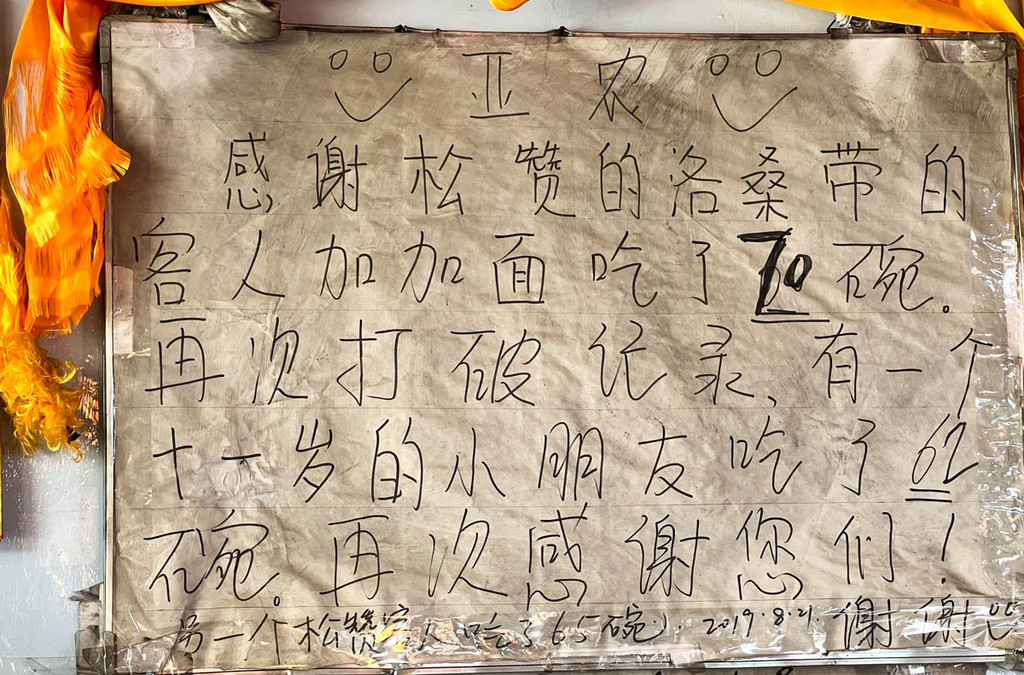 亚农
感谢松赞的洛桑带的
客人加加面吃了70碗。
再次打破记录、有一个
十一岁的小朋友吃了62
碗。再次感谢您们！
另一个松赞客人吃了65碗. 2019.8.21. 谢谢